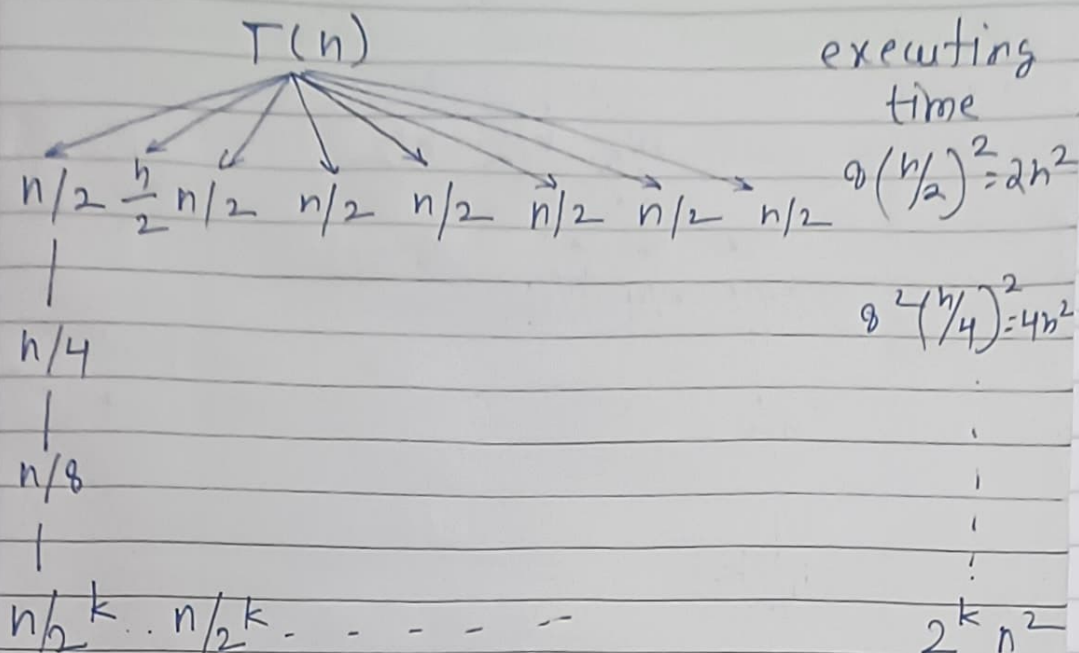 T(n) executing
time
n/2 n/2 n/2 n/2 n/2 n/2 n/2 n/2 8(n/2)²=2n²
n/4 8²(n/4)²=4n²
n/8
n/2^k .. n/2^k - - - - - 2^k n²